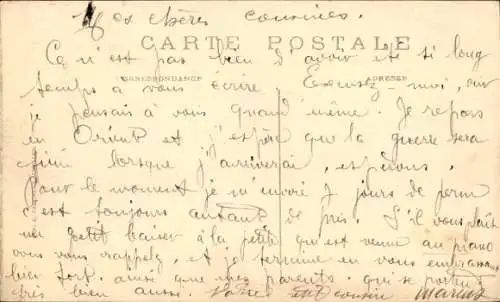 Mes chères cousines.
CARTE POSTALE
Ce n'est pas bien d'avoir été si long
CORRESPONDANCE ADRESSE
temps à vous écrire, Excusez-moi, car
je pensais à vous quand même. Je repars
en Orient et j'espère que la guerre sera
finie lorsque j'arriverai, espérons.
Pour le moment je m'envoie 7 jours de perm
c'est toujours autant de pris. S'il vous plait
un petit baiser à la petite qui est venue au piano
vous vous rappelez, et je termine en vous embrassant
bien fort. ainsi que mes parents. qui se portent
très bien aussi. Votre petit cousin